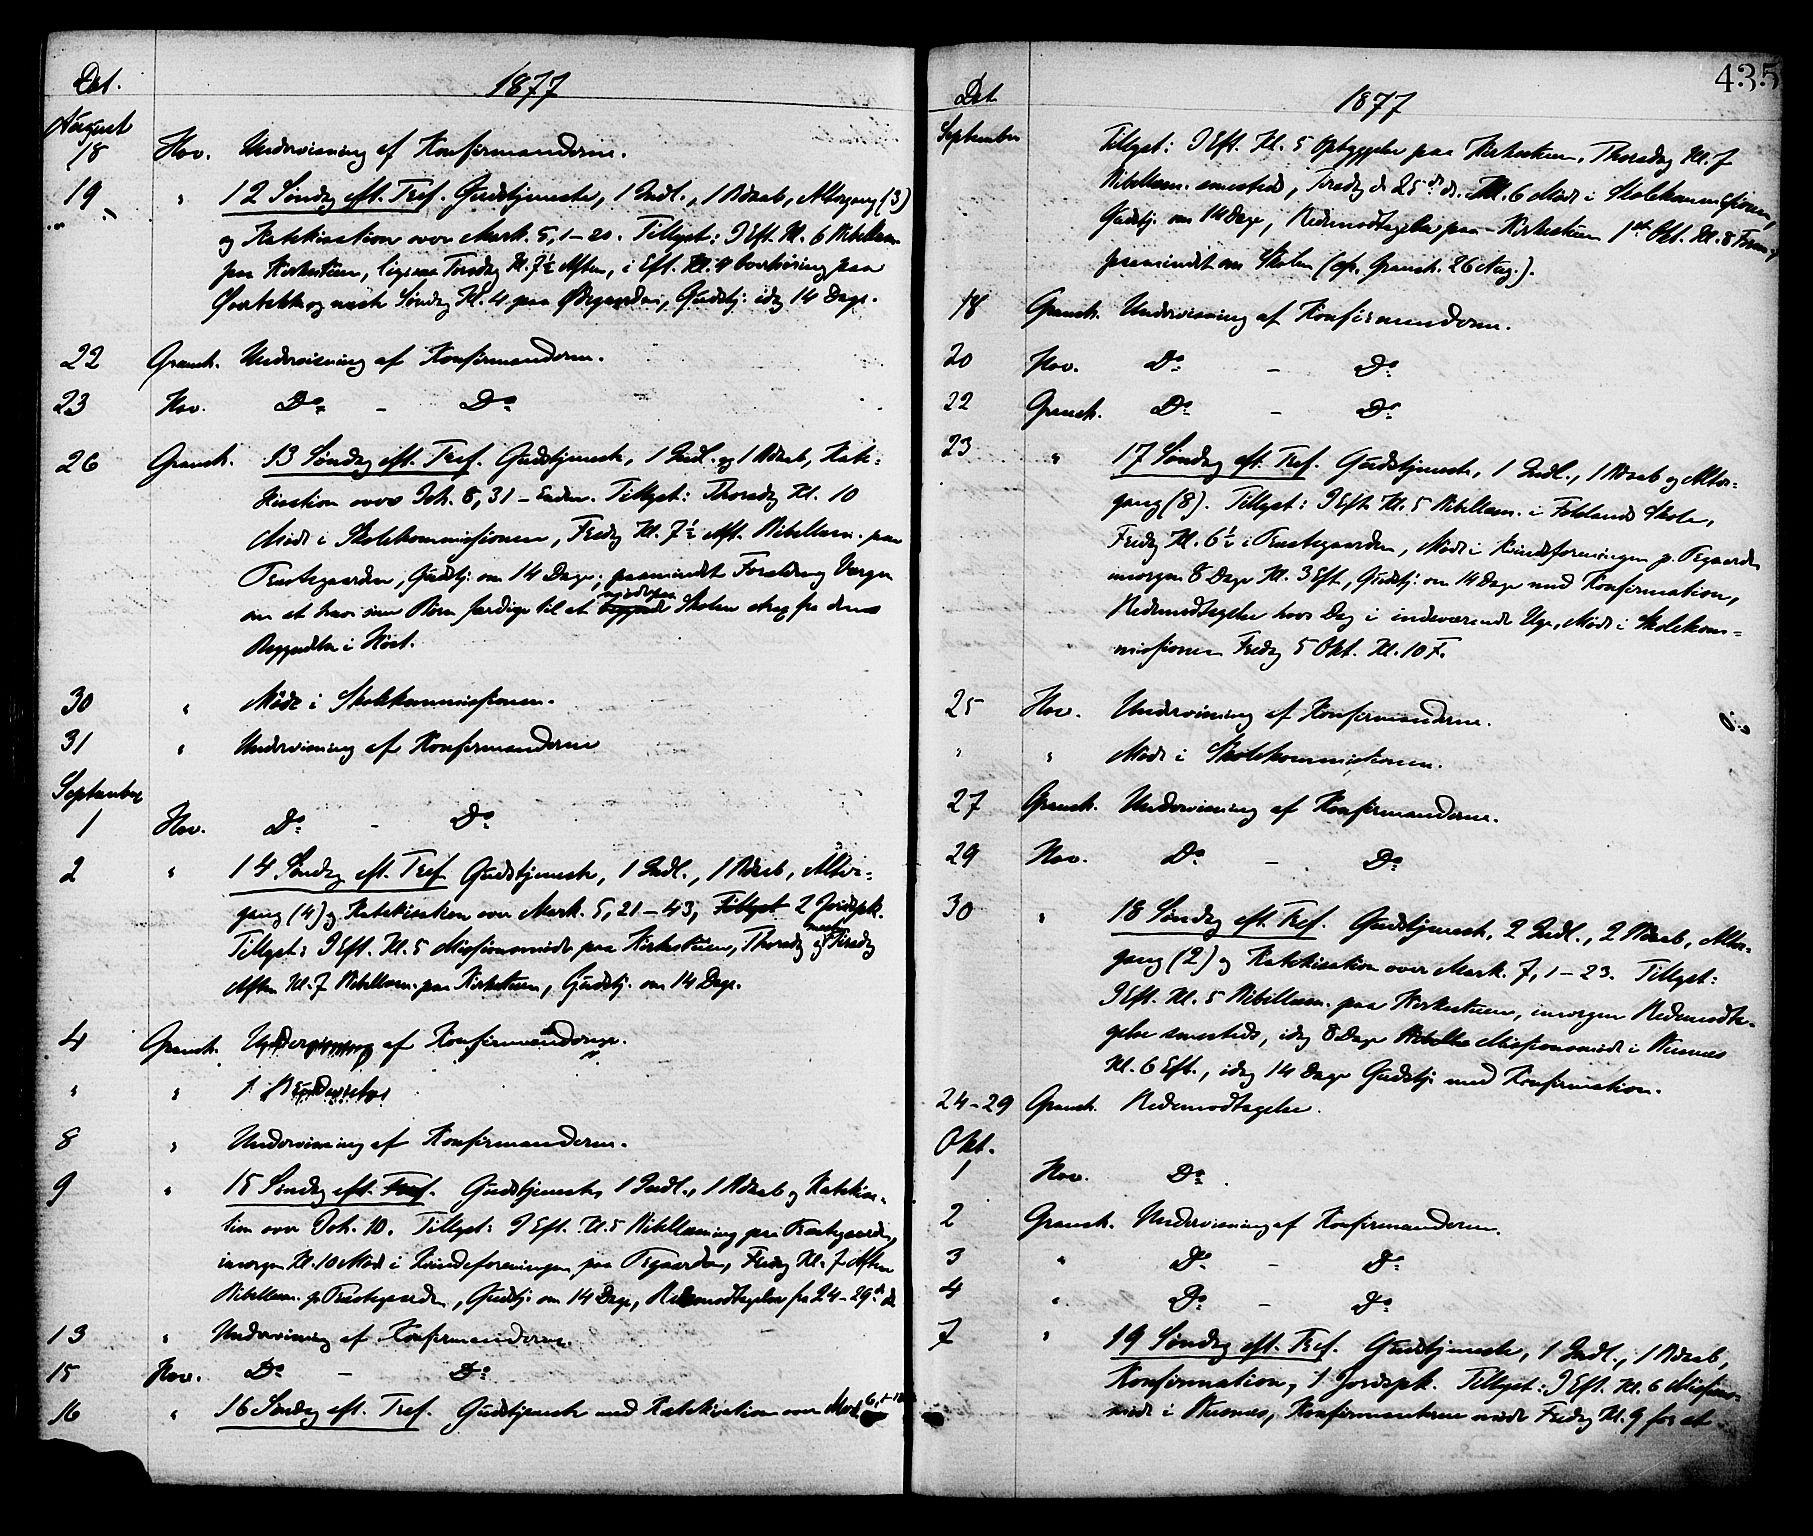 Dat.
1877
August
18 Hov. Undervisning af Konfirmanderne.
19 " 12 Søndag eft. Tref. Gudstjeneste, 1 Indl., 1 Adaab, Altergang (3)
og Katekisation over Mark. 5, 1-20. Tillyst: I Eft. Kl. 6 Bibellæsn.
paa Kirkestuen, ligesaa Torsdag Kl. 7½ Aften, i Eft. Kl. 4 paa
og næste Søndag Kl. 4 paa Gudstj. idag 14 Dage.
22 Gransh. Undervisning af Konfirmanderne.
23 Hov. Do - Do
26 Gransh. 13 Søndag eft. Tref. Gudstjeneste, 1 Indl. og 1 Adaab, Kate-
kisation over Joh. 8, 31 - Enden. Tillyst: Thorsdag Kl. 10
Møde i Skolekommissionen, Fredag Kl. 7½ Aft. Bibellæsn. paa
Præstegaarden, Gudstj. om 14 Dage; paamindet Forældre og Værger
om at have sine Børn færdige til at møde paa Skolen strax fra dens
Begyndelse i Høst.
30 " Møde i Skolekommissionen.
31 " Undervisning af Konfirmanderne
September
1 Hov. Do - Do
2 " 14 Søndag eft. Tref. Gudstjeneste, 1 Indl., 1 Adaab, Alter-
gang (4) og Katekisation over Mark. 5, 21-43, Tillyst 2 Jordspk.
Tillyst: I Eft. Kl. 5 Missionsmøde paa Kirkestuen, Thorsdag og næste Tirsdag
Aften Kl. 7 Bibellæsn. paa Kirkestuen, Gudstj. om 14 Dage.
4 Gransh. Undervisning af Konfirmanderne.
" " 1
8 " Undervisning af Konfirmanderne.
9 " 15 Søndag eft. Tref. Gudstjeneste, 1 Indl., 1 Adaab og Katekisa-
tion over Joh. 10. Tillyst: I Eft. Kl. 5 Bibellæsning paa Præstegaarden,
imorgen Kl. 10 Møde i Kvindeforeningen paa Prgaarden, Fredag Kl. 7 Aften
Bibellæsn. p. Præstegaarden, Gudstj. om 14 Dage, Redemodtagelse fra 24-29de ds
13 " Undervisning af Konfirmanderne.
15 Hov. Do - Do
16 " 16 Søndag eft. Tref. Gudstjeneste med Katekisation over Mark. 6, 1-
435
Dat.
1877
September Tillyst: I Eft. Kl. 5 Opbyggelse paa Kirkestuen, Thorsdag Kl. 7
Bibellæsn. smesteds, Tirsdag d. 25de ds. Kl. 6 Møde i Skolekommissionen,
Gudstj. om 14 Dage, Redemodtagelse paa Kirkestuen 1ste Okt. Kl. 8 Form.,
paamindet om Skolen (cfr. Gransh. 26 Aug.).
18 Gransh. Undervisning af Konfirmanderne.
20 Hov. Do - Do
22 Gransh. Do - Do
23 " 17 Søndag eft. Tref. Gudstjeneste, 1 Indl., 1 Adaab og Alter-
gang (8). Tillyst: I Eft. Kl. 5 Bibellæsn. i Skole,
Fredag Kl. 6½ i Præstegaarden, Møde i Kvindeforeningen p. Prgaarden
imorgen 8 Dage Kl. 3 Eft., Gudstj. om 14 Dage med Konfirmation,
Redemodtagelse hver Dag i indeværende Uge, Møde i Skolekom-
missionen Fredag 5 Okt. Kl. 10 F.
25 Hov. Undervisning af Konfirmanderne.
" " Møde i Skolekommissionen.
27 Gransh. Undervisning af Konfirmanderne.
29 Hov. Do - Do
30 " 18 Søndag eft. Tref. Gudstjeneste, 2 Indl., 2 Adaab, Alter-
gang (2) og Katekisation over Mark. 7, 1-23. Tillyst:
I Eft. Kl. 5 Bibellæsn. paa Kirkestuen, imorgen Redemodta-
gelse smesteds, idag 8 Dage Missionsmøde i
Kl. 6 Eft., idag 14 Dage Gudstj. med Konfirmation.
24-29 Gransh. Redemodtagelse.
Okt.
1 Hov. Do
2 Gransh. Undervisning af Konfirmanderne.
3 " Do - Do
4 " Do - Do
7 " 19 Søndag eft. Tref. Gudstjeneste, 1 Indl., 1 Adaab,
Konfirmation, 1 Jordspk. Tillyst: I Eft. Kl. 6 Missions-
møde i Konfirmanterne møde Fredag Kl. 9 for at